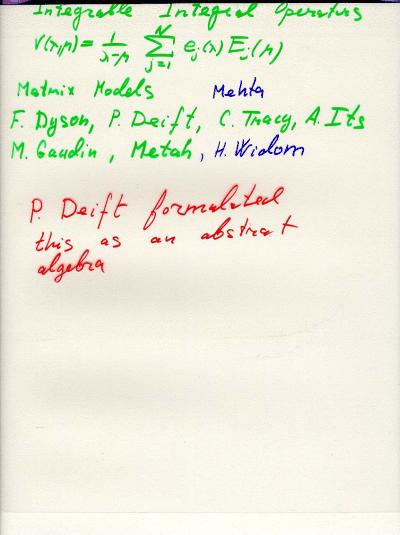 Integrable Integral Operators
V(λ,μ) = 1/(λ-μ) N∑j=1 e_j(λ) E_j(μ)
Matrix Models Mehta
F. Dyson, P. Deift, C. Tracy, A. Its
M. Gaudin, Metah, H. Widom
P. Deift formulated
this as an abstract
algebra